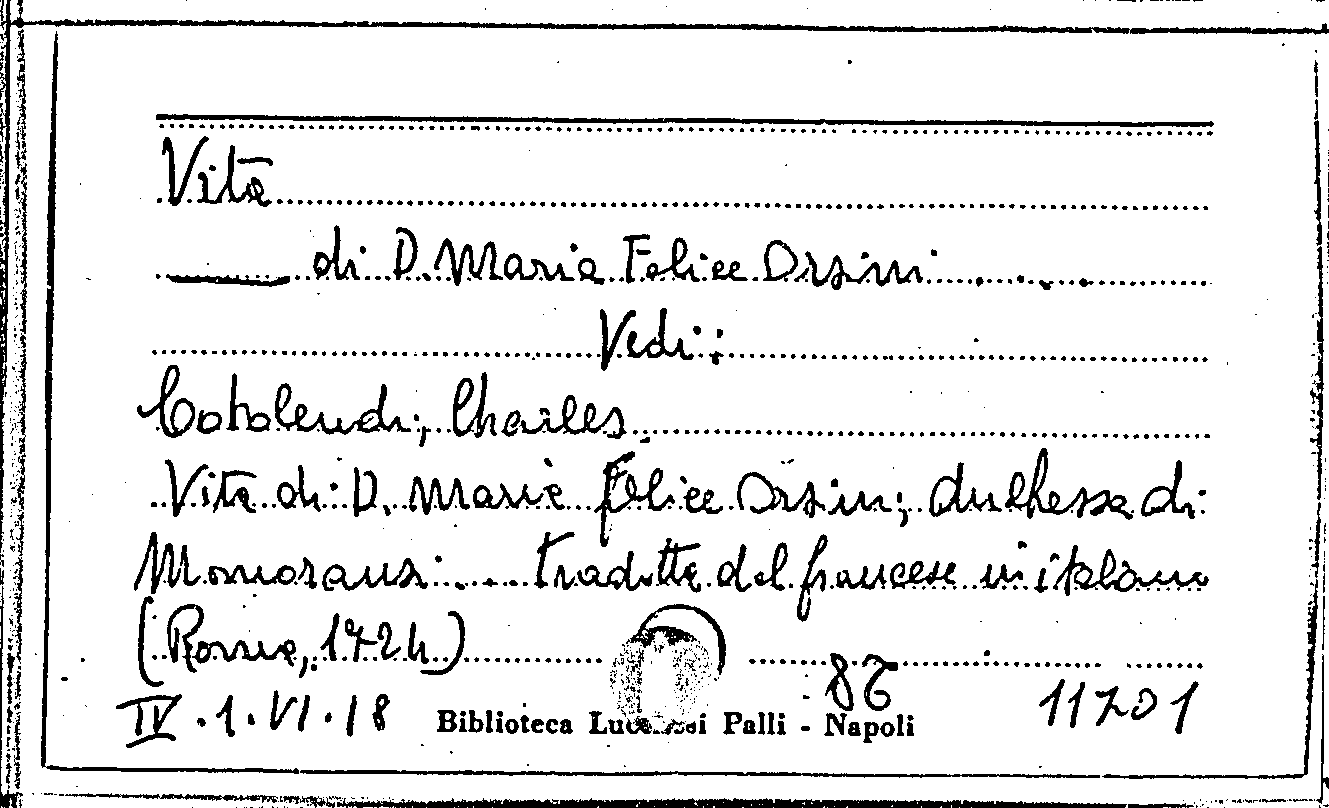 Vita
di D. Maria Felice Orsini .....
Vedi:
Cotolendi, Charles.
Vita di D. Maria Felice Orsini, duchessa di
.... tradotta dal francese in italiano
(Roma, 1724)
IV.1.VI.18 Biblioteca Lucchesi Palli - Napoli 11701